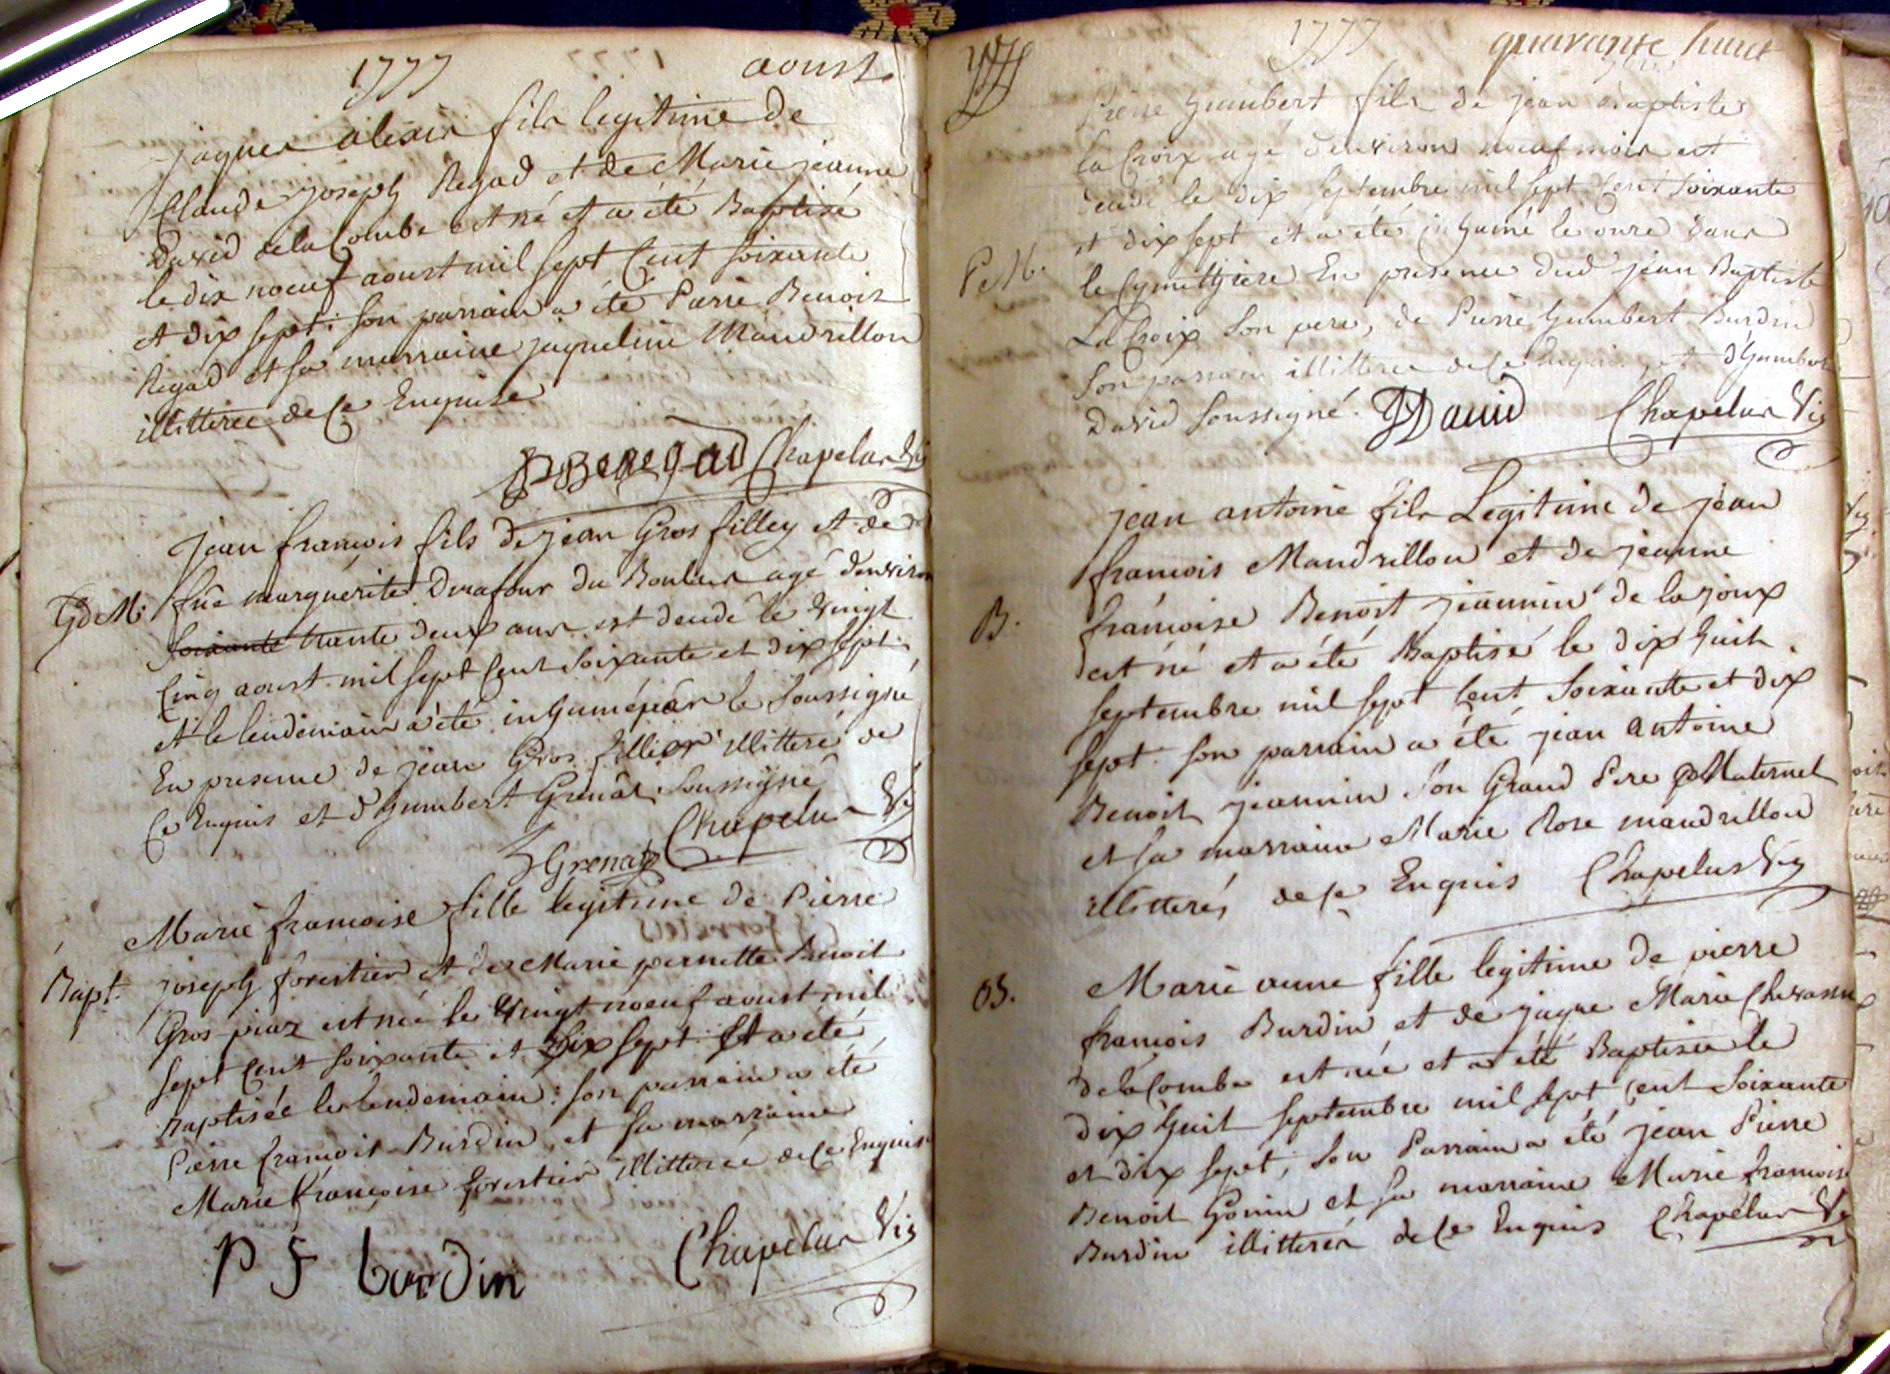 1777 aoust.
jaques alexis fils legitime de
Claude joseph Regad et de Marie jeanne
David de la Combe est né et a été Baptisé
le dix noeuf aoust mil sept Cent soixante
et dix sept: son parrain a été Pierre Benoit
Regad et sa marraine jaqueline Mandrillon
illitteree de ce Enquise
PBeregad Chapelus Vic
jean françois fils de jean Gros fillex et de
Gd M: füe marguérite Durafour du Boulus agé denviron
soixante trante deux ans est decedé le vingt
Cinq aoust mil sept Cent soixante et dix sept
et le lendemain a été inhumé par le soussigné
En presence de jean Gros fillier illitteré de
Ce Enquis et d'humbert Grenat soussigné
Grenat Chapelus Vic
Marie francoise fille legitime de Pierre
Bapt. joseph forestier et de Marie pernette Benoit
Gros piaz est née le Vingt noeuf aoust mil
sept Cent soixante et Dix sept Et a eté
Baptisée le lendemain: son parrain a eté
Pierre françois Burdin, et sa marraine
Marie françoise forestier illitterée de ce Enquise
P f burdin Chapelus Vic
1777 quarante huit
Pierre humbert fils de jean Baptiste
la Croix agé denviron noeuf mois est
decedé le dix septembre mil sept Cent soixante
et dix sept et a été inhumé le onze dans
P. M. le Cymithiere En presence dud jean Baptiste
La Croix son pere, de Pierre humbert Burdin
son parrain illitteré de ce Enquis, et d'humbert
David soussigné. David Chapelus Vic
jean antoine fils Legitime de jean
francois Mandrillon et de jeanne
B. françoise Benoit jeannin de la joux
est né et a été Baptisé le dix huit
septembre mil sept Cent soixante et dix
sept. son parrain a été jean antoine
Benoit jeannin son Grand Pere Maternel
et sa marraine Marie Rose mandrillon
illitterés de ce Enquis Chapelus Vic
B. Marie anne fille legitime de pierre
francois Burdin et de jaque Marie Chevassu
de la Combe est née et a été Baptisée le
dix huit septembre mil sept Cent soixante
et dix sept, son Parrain a été jean Pierre
Benoit Gonin et sa marraine Marie francoise
Burdin illitterés de ce Enquis Chapelus Vic